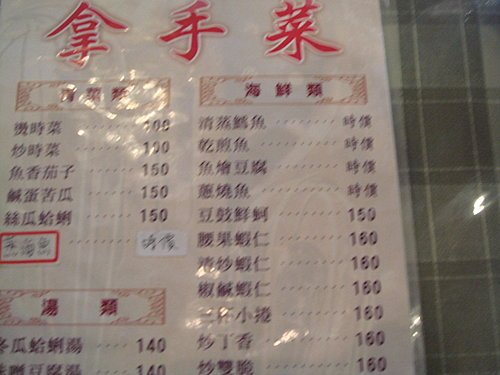 拿手菜
青菜類
燙時菜 100
炒時菜 100
魚香茄子 150
鹹蛋苦瓜 150
絲瓜蛤蜊 150
時價
湯類
冬瓜蛤蜊湯 140
豆腐湯 140
海鮮類
清蒸鱈魚 時價
乾煎魚 時價
魚燴豆腐 時價
蔥燒魚 時價
豆鼓鮮蚵 150
腰果蝦仁 160
清炒蝦仁 160
椒鹹蝦仁 160
三杯小捲 160
炒丁香 160
炒雙脆 160